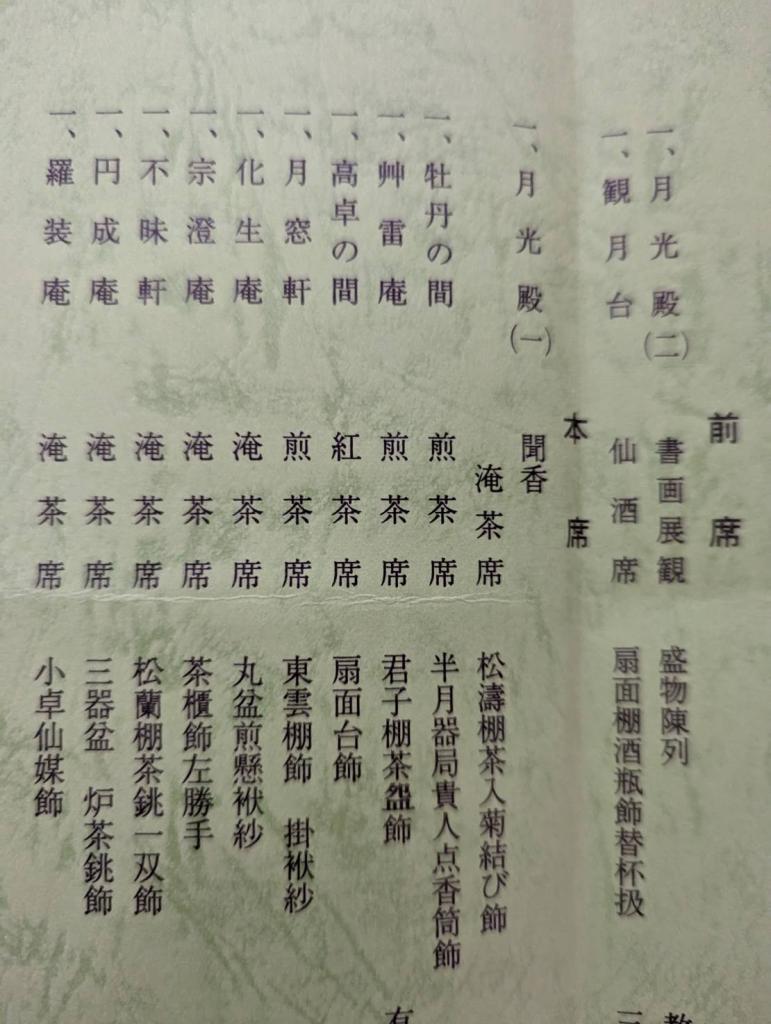 前席
一、月光殿(二) 書画展観 盛物陳列
一、観月台 仙酒席 扇面棚酒瓶飾替杯扱
本席
一、月光殿(一) 聞香
淹茶席 松濤棚茶入菊結び飾
一、牡丹の間 煎茶席 半月器局貴人点香筒飾
一、艸雷庵 煎茶席 君子棚茶盌飾
一、高卓の間 紅茶席 扇面台飾
一、月窓軒 煎茶席 東雲棚飾 掛袱紗
一、化生庵 淹茶席 丸盆煎懸袱紗
一、宗澄庵 淹茶席 茶櫃飾左勝手
一、不昧軒 淹茶席 松蘭棚茶銚一双飾
一、円成庵 淹茶席 三器盆 炉茶銚飾
一、羅装庵 淹茶席 小卓仙媒飾